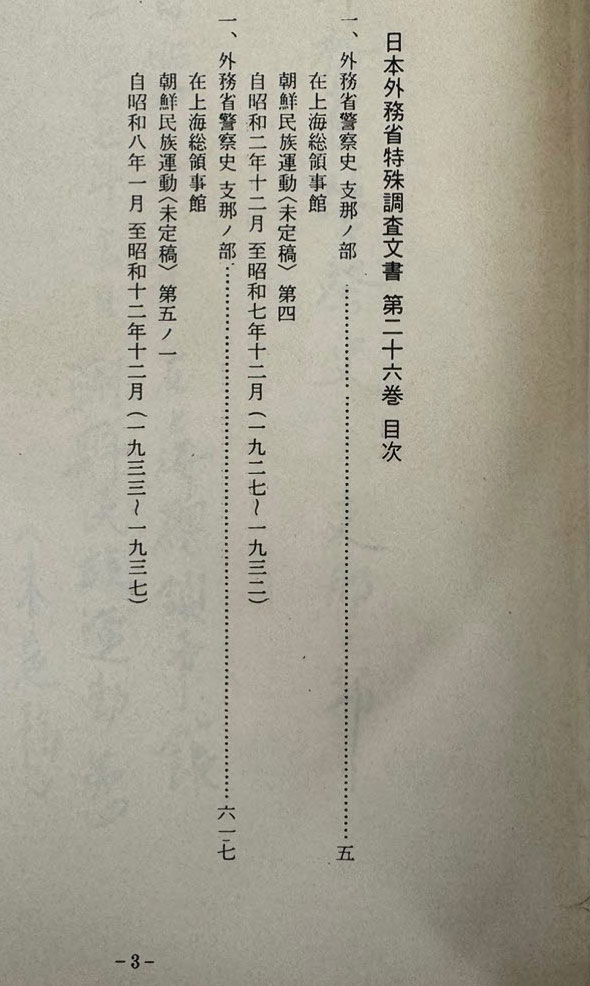 日本外務省特殊調査文書 第二十六巻 目次
一、外務省警察史 支那ノ部 ……………………………………五
在上海総領事館
朝鮮民族運動〈未定稿〉 第四
自昭和二年十二月 至昭和七年十二月（一九二七～一九三二）
一、外務省警察史 支那ノ部……………………………………六一七
在上海総領事館
朝鮮民族運動〈未定稿〉 第五ノ一
自昭和八年一月 至昭和十二年十二月（一九三三～一九三七）
-3-